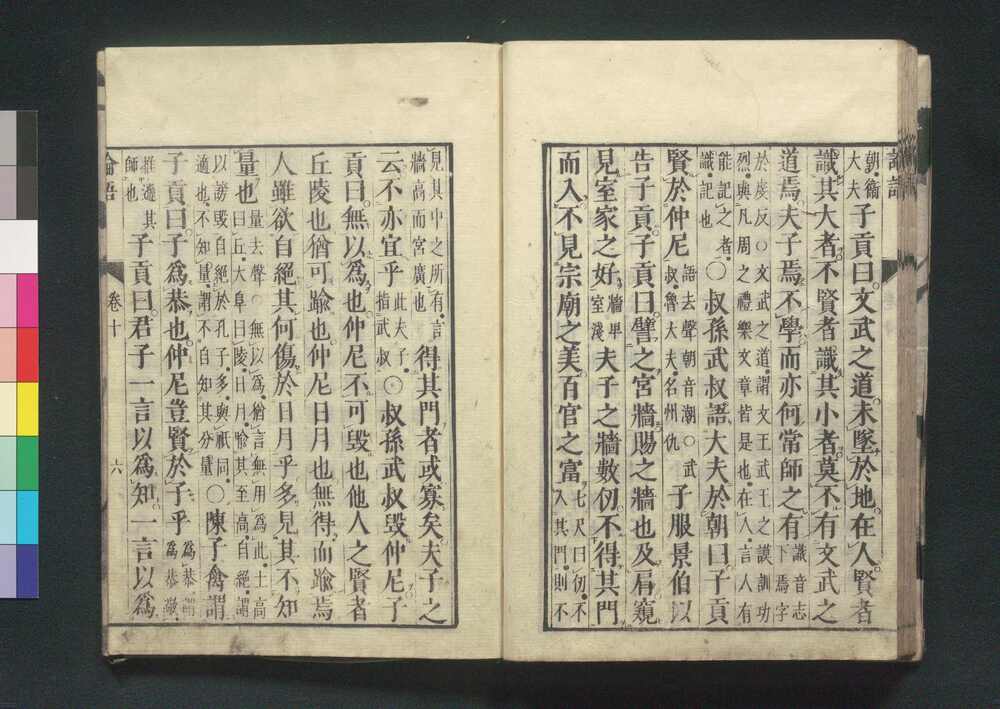 論語
朝衛
大夫子貢曰文武之道未墜於地在人賢者
識其大者不賢者識其小者莫不有文武之
道焉夫子焉不學而亦何常師之有識音志下焉字
於虔反○文武之道謂文王武王之謨訓功
烈與凡周之禮樂文章皆是也在人言人有
能記之者
識記也○叔孫武叔語大夫於朝曰子貢
賢於仲尼語去聲朝音潮○武叔魯大夫名州仇子服景伯以
告子貢子貢曰譬之宮牆賜之牆也及肩窺
見室家之好牆卑室淺夫子之牆數仞不得其門
而入不見宗廟之美百官之富七尺曰仞不入其門則不
見其中之所有言
牆高而宮廣也得其門者或寡矣夫子之
云不亦宜乎此夫子指武叔○叔孫武叔毀仲尼子
貢曰無以為也仲尼不可毀也他人之賢者
丘陵也猶可踰也仲尼日月也無得而踰焉
人雖欲自絕其何傷於日月乎多見其不知
量也量去聲○無以為猶言無用為此土高曰丘大阜曰陵日月喻其至高自絕謂
以謗毀自絕於孔子多與祇同
適也不知量謂不自知其分量○陳子禽謂
子貢曰子為恭也仲尼豈賢於子乎為恭謂為恭敬
推遜其
師也子貢曰君子一言以為知一言以為
論語
卷十
六